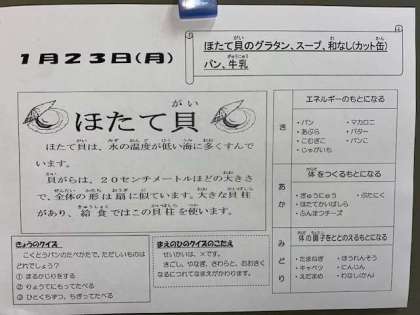 1月23日(月)
ほたて貝のグラタン、スープ、和なし(カット缶)
パン、牛乳
ほたて貝
ほたて貝は、水の温度が低い海に多くすんで
います。
貝がらは、20センチメートルほどの大きさ
で、全体の形は扇に似ています。大きな貝柱
があり、給食ではこの貝柱を使います。
きょうのクイズ
こくとうパンのたべかたで、ただしいものは
どれでしょう?
① まるかじりをする
② りょうてにもってたべる
③ ひとくちずつ、ちぎってたべる
まえのひのクイズのこたえ
せいかいは、×です。
きごし、やなぎ、さわらと、おおきく
なるにつれてなまえがかわります。
エネルギーのもとになる
き
・パン ・マカロニ
・あぶら ・バター
・こむぎこ ・パンこ
・じゃがいも
体をつくるもとになる
あか
・ぎゅうにゅう ・ぶたにく
・ほたてかいばしら
・ふんまつチーズ
体の調子をととのえるもとになる
みどり
・たまねぎ ・ほうれんそう
・キャベツ ・にんじん
・えだまめ ・わなし(かん)